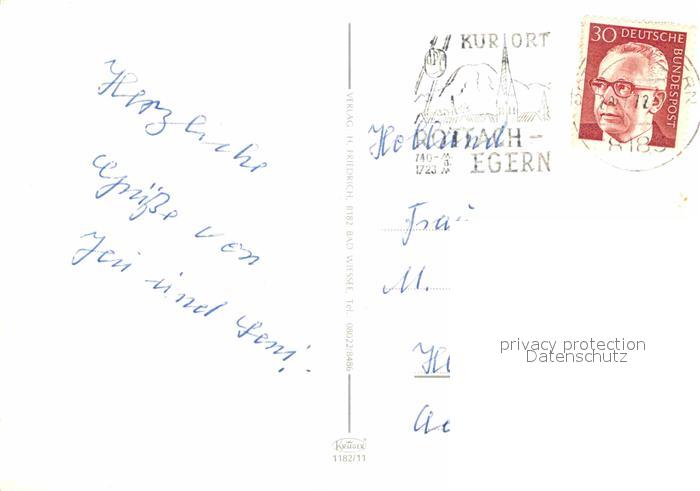 Herzliche
Grüße von
Jeu und Leni.
VERLAG H. FRIEDRICH, 8182 BAD WIESSEE, Tel. 08022/8486
KRÜGER
1182/11
KURORT
ROTTACH-
EGERN
740-M
1723 M
30 DEUTSCHE
BUNDESPOST
8183
Holland
Frau
M.
privacy protection
Datenschutz